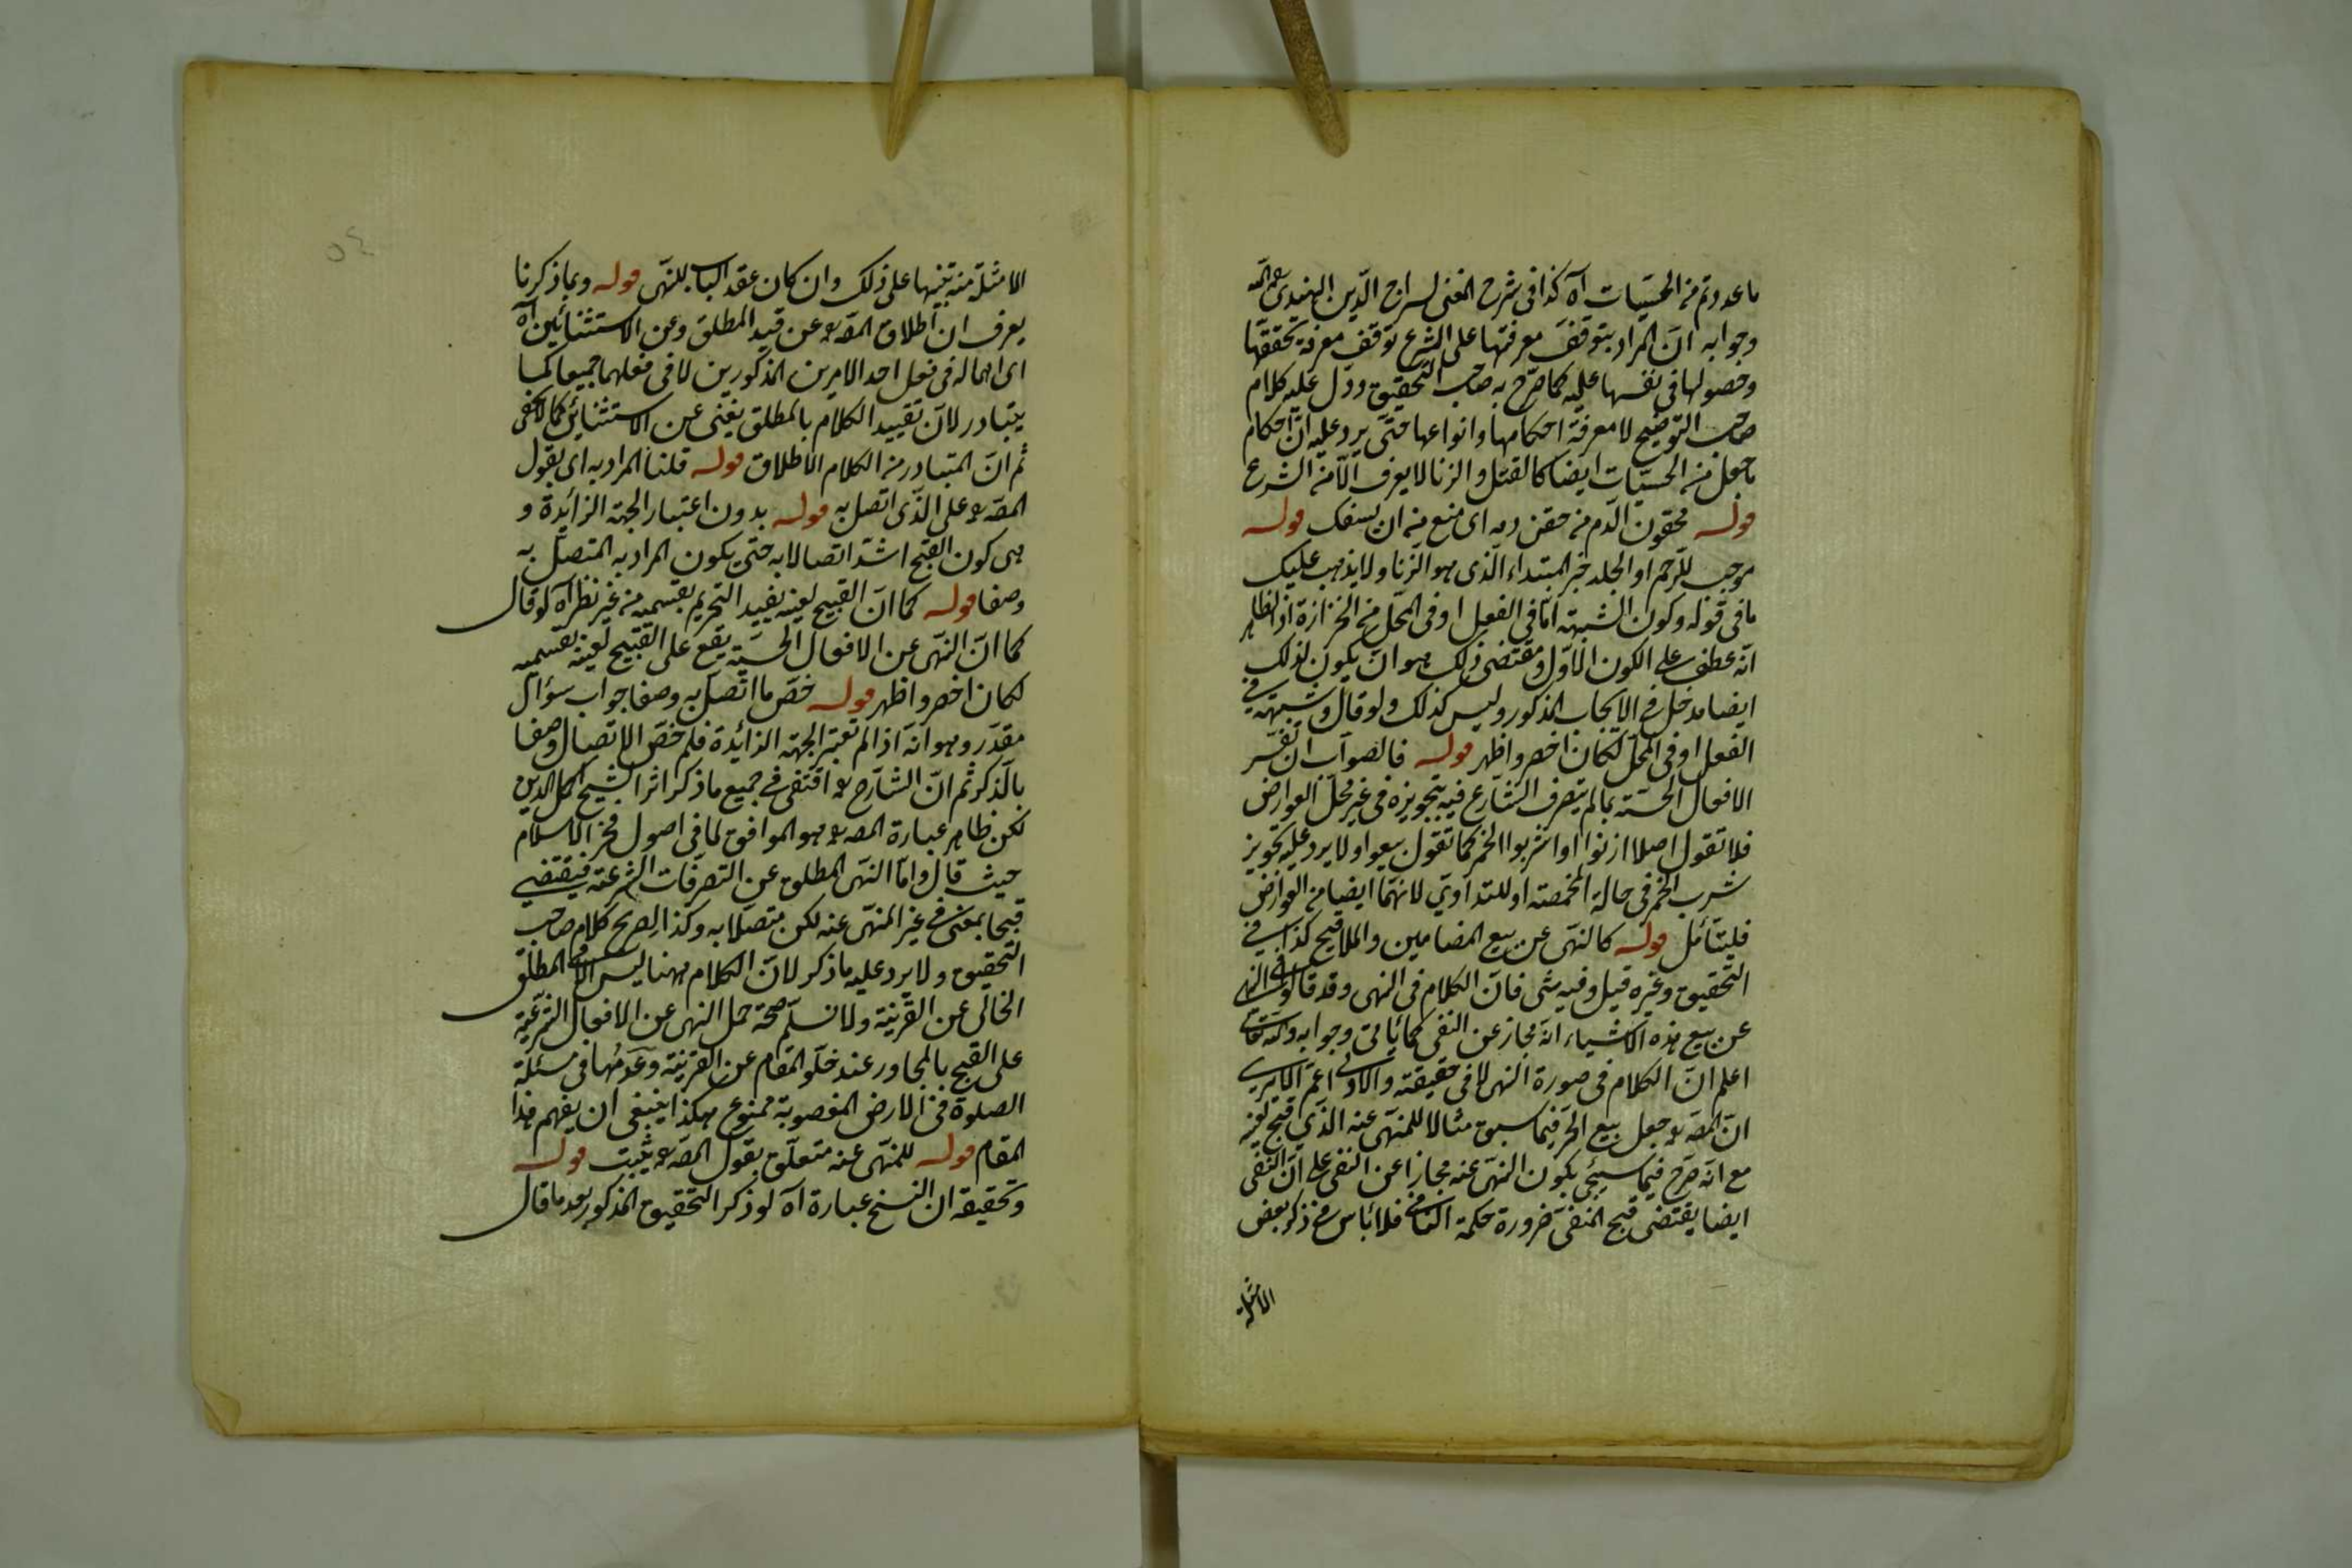 ما عددتم من الحسيات اه كذا فى شرح المغنى لسراج الدين الهندى رحمه الله
وجوابه ان المراد بتوقف معرفتها على الشرع توقف معرفة تحققها
وحصولها فى نفسها عليه كما صرح به صاحب التحقيق ودل عليه كلام
صاحب التوضيح لا معرفة احكامها وانواعها حتى يرد عليه ان احكام
ما جعل من الحسيات ايضا كالقتل والزنا لا يعرف الا من الشرع
قوله محقون الدم من حقن دمه اى منع من ان يسفك قوله
موجب للرجم او الجلد خبر المبتداء الذى هو الزنا ولا يذهب عليك
ما فى قوله وكون الشبهة اما فى الفعل او فى المحل من الحزازة اذ الظاهر
انه عطف على الكون الاول ومقتضى ذلك هو ان يكون لذلك
ايضا مدخل فى الايجاب المذكور وليس كذلك ولو قال وشبهته فى
الفعل او فى المحل لكان اخصر واظهر قوله فالصواب ان تفسر
الافعال الحسية بما لم يتصرف الشارع فيه بتجويزه فى غير محل العوارض
فلا تقول اصلا ازنوا او اشربوا الخمر كما تقول بيعوا ولا يرد عليه تجويز
شرب الخمر فى حالة المخمصة او للتداوي لانهما ايضا من العوارض
فليتأمل قوله كالنهى عن بيع المضامين والملاقيح كذا فى
التحقيق وغيره قيل وفيه شى فان الكلام فى النهى وقد قالوا فى النهى
عن بيع هذه الاشياء انه مجاز عن النفى كما يأتى وجوابه والله تعالى
اعلم ان الكلام فى صورة النهى لا فى حقيقته والاولى اعم الا يرى
ان المصـ جعل بيع الحر فيما سبق مثالا للمنهى عنه الذي قبح لعينه
مع انه صرح فيما سيجئ بكون النهى عنه مجازا عن النفى على ان النفى
ايضا يقتضى قبح المنفى ضرورة حكمة النافى فلا بأس من ذكر بعض
الامثلة
٥٤
الامثلة منه تنبيها على ذلك وان كان عقد الباب للنهى قوله وبما ذكرنا
يعرف ان اطلاق المصـ عن قيد المطلق وعن الاستثنائين اه
اى اهماله فى فعل احد الامرين المذكورين لا فى فعلهما جميعا كما
يتبادر لان تقييد الكلام بالمطلق يغنى عن الاستثنائين كما لا يخفى
ثم ان المتبادر من الكلام الاطلاق قوله قلنا المراد به اى بقول
المصـ على الذى اتصل به قوله بدون اعتبار الجهة الزائدة و
هى كون القبح اشد اتصالا به حتى يكون المراد به المتصل به
وصفا قوله كما ان القبيح لعينه يفيد التحريم بقسميه من غير نظر اه لو قال
كما ان النهى عن الافعال الحسية يقع على القبيح لعينه بقسميه
لكان اخصر واظهر قوله خص ما اتصل به وصفا جواب سؤال
مقدر وهو انه اذا لم تعتبر الجهة الزائدة فلم خص الاتصال وصفا
بالذكر ثم ان الشارح اقتفى فى جميع ما ذكر اثر الشيخ اكمل الدين
لكن ظاهر عبارة المصـ هو الموافق لما فى اصول فخر الاسلام
حيث قال واما النهى المطلق عن التصرفات الشرعية فيقتضى
قبحا بمعنى فى غير المنهى عنه لكن متصلا به وكذا صريح كلام صاحب
التحقيق ولا يرد عليه ما ذكر لان الكلام ههنا ليس الا فى المطلق
الخالى عن القرينة ولا نسلم صحة حمل النهى عن الافعال الشرعية
على القبيح بالمجاور عند خلو المقام عن القرينة وعدمها فى مسئلة
الصلوة فى الارض المغصوبة ممنوع هكذا ينبغى ان يفهم هذا
المقام قوله للمنهى عنه متعلق بقول المصـ يثبت قوله
وتحقيقه ان النسخ عبارة اه لو ذكر التحقيق المذكور بعد ما قال